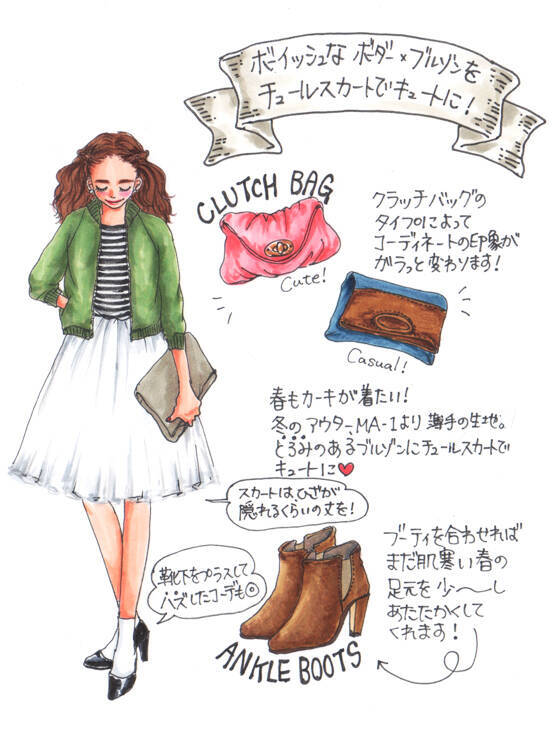 ボーイッシュな ボーダー×ブルゾンを
チュールスカートでキュートに!
CLUTCH BAG
クラッチバッグの
タイプによって
コーディネートの印象が
ガラっと変わります!
Cute!
Casual!
春もカーキが着たい!
冬のアウター、MA-1より 薄手の生地。
とろみのあるブルゾンにチュールスカートで
キュートに♥
スカートは、ひざが
隠れるくらいの丈を!
ブーティを合わせれば
まだ肌寒い春の
足元を少〜し
あたたかくして
くれます!
靴下をプラスして
ハズしたコーデも◎
ANKLE BOOTS